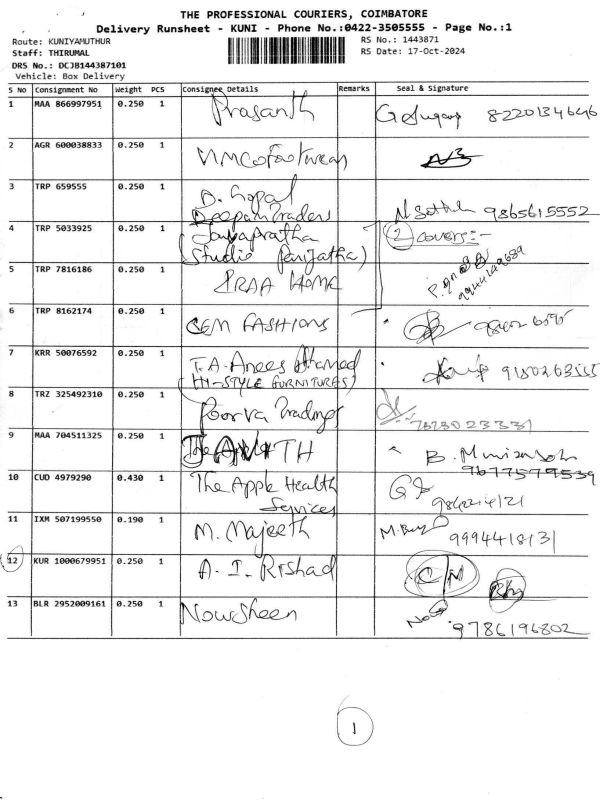 THE PROFESSIONAL COURIERS, COIMBATORE
Delivery Runsheet - KUNI - Phone No.:0422-3505555 - Page No.:1
Route: KUNIYAMUTHUR
RS No.: 1443871
Staff: THIRUMAL
RS Date: 17-Oct-2024
DRS No.: DCJB144387101
Vehicle: Box Delivery
S No Consignment No Weight PCS Consignee Details Remarks Seal & Signature
1 MAA 866997951 0.250 1 Prasanth 8220134646
2 AGR 600038833 0.250 1 VMCO Footwear
3 TRP 659555 0.250 1 D. Gopal
Deepam Traders 9865615552
4 TRP 5033925 0.250 1 Jayapratha
(Studio Parijatha) (2) covers:-
5 TRP 7816186 0.250 1 PRAA HOME 9944149689
6 TRP 8162174 0.250 1 GEM FASHIONS
7 KRR 50076592 0.250 1 T.A. Anees Ahamed
(HI-STYLE FURNITURES)
8 TRZ 325492310 0.250 1 Poorva Tradings
9 MAA 704511325 0.250 1 9677579539
10 CUD 4979290 0.430 1 The Apple Health
Services
11 IXM 507199550 0.190 1 M. Majeeth 9994418131
12 KUR 1000679951 0.250 1 A. I. Rishad
13 BLR 2952009161 0.250 1 Nowsheen 9786196802
1